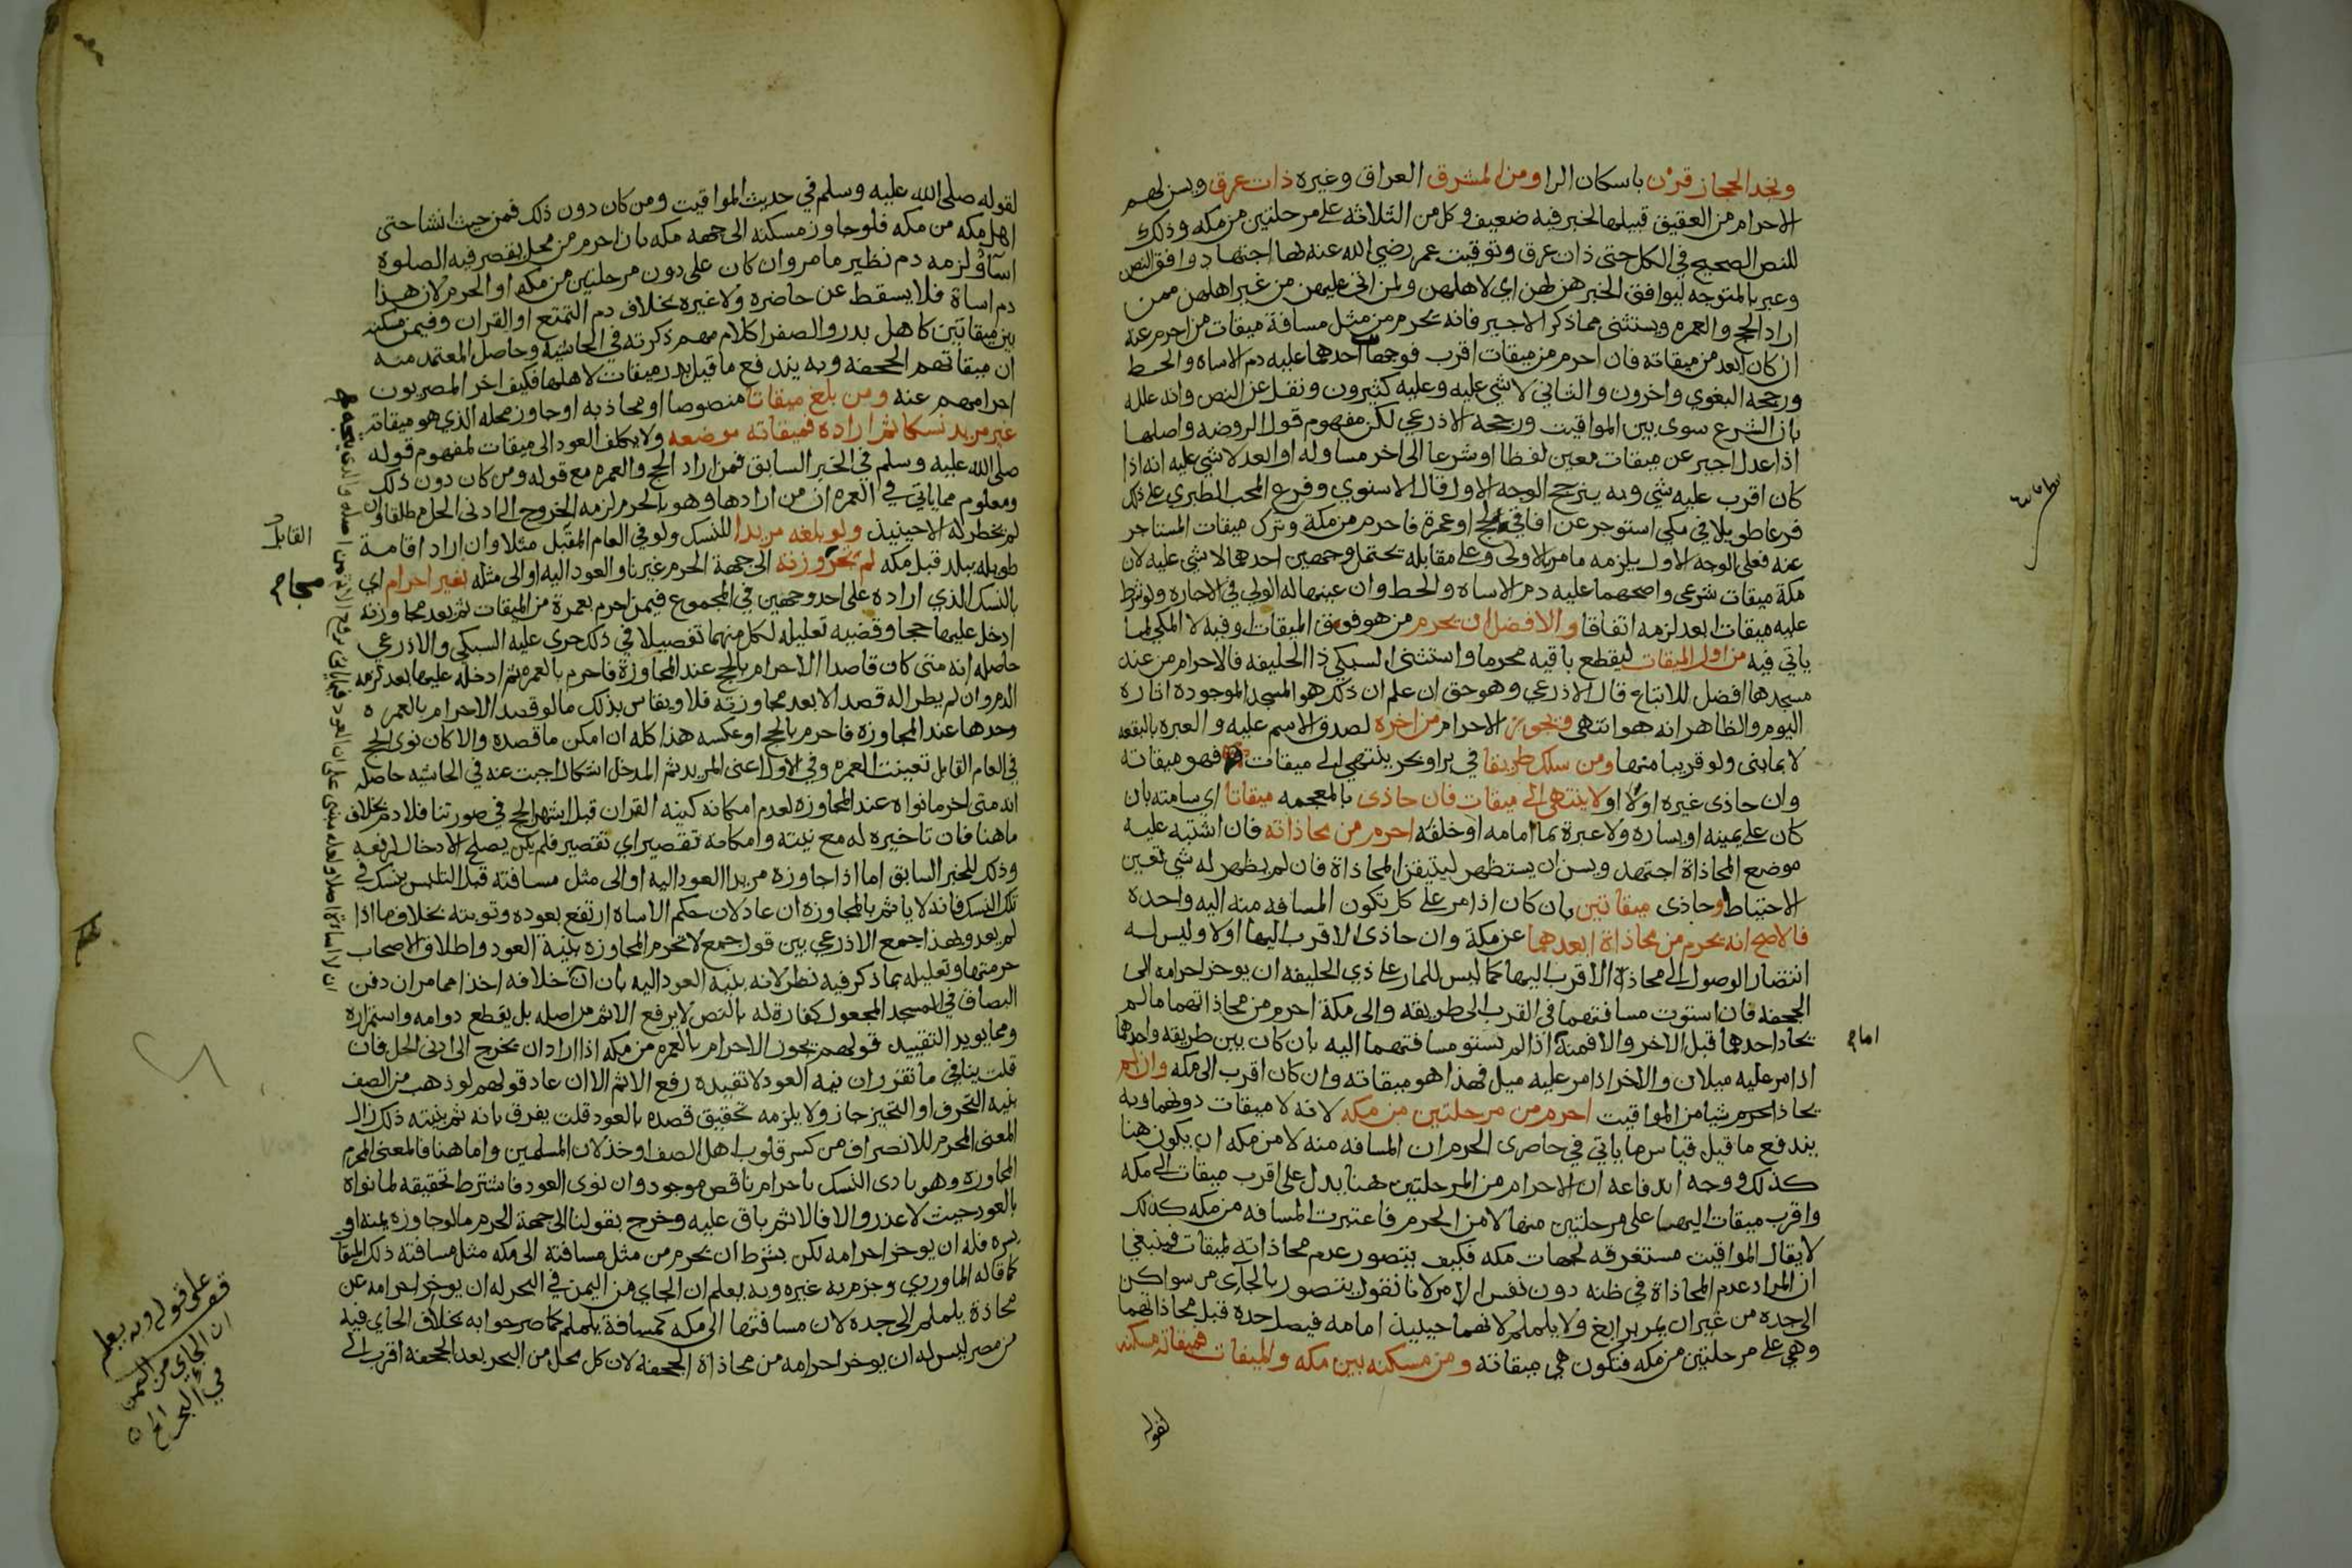 ونجد الحجاز قرن باسكان الرا ومن المشرق العراق وغيره ذات عرق ويسن لهم
الاحرام من العقيق قبيلها لخبر فيه ضعيف وكل من الثلاثة على مرحلتين من مكه وذلك
للنص الصحيح في الكل حتى ذات عرق وتوقيت عمر رضي الله عنه لها اجتهاد وافق النص
وعبر بالمتوجه ليوافق الخبر هن لهن اي لاهلهن ولمن اتى عليهن من غير اهلهن ممن
اراد الحج والعمره ويستثنى مما ذكر الاجير فانه يحرم من مثل مسافة ميقات من احرم عنه
ان كان ابعد من ميقاته فان احرم من ميقات اقرب فوجهان احدهما عليه دم الاساه والحط
ورجحه البغوي واخرون والثاني لا شي عليه وعليه كثيرون ونقل عن النص وانه علله
بان الشرع سوى بين المواقيت ورجحه الاذرعي لكن مفهوم قول الروضه واصلها
اذا عدل اجير عن ميقات معين لفظا او شرعا الى اخر مساو له او ابعد لا شي عليه انه اذا
كان اقرب عليه شي وبه يترجح الوجه الاول قال الاسنوي وفرع المحب الطبري على ذلك
فرعا طويلا في مكي استوجر عن افاقي لحج او عمرة فاحرم من مكة وترك ميقات المستاجر
عنه فعلى الوجه الاول يلزمه ما مر بالاولى وعلى مقابله تحتمل وجهين احدهما لا شي عليه لان
مكة ميقات شرعي واصحهما عليه دم الاساه والحط وان عينها له الولي في الاجاره ولو شرط
عليه ميقات ابعد لزمه اتفاقا والافضل ان يحرم من هو فوق الميقات او فيه لا المكي لما
ياتي فيه من اول الميقات ليقطع باقيه محرما واستثنى السبكي ذا الحليفه فالاحرام من عند
مسجدها افضل للاتباع قال الاذرعي وهو حق ان علم ان ذلك هو المسجد الموجودة اثاره
اليوم والظاهر انه هو انتهى ويجوز الاحرام من اخره لصدق الاسم عليه والعبره بالبقعه
لا بما بنى ولو قريبا منها ومن سلك طريقا في بر او بحر ينتهي الى ميقات فهو ميقاته
وان حاذى غيره اولا او لا ينتهى الى ميقات فان حاذى بالمعجمه ميقاتا اي سامته بان
كان على يمينه او يساره ولا عبرة بما امامه او خلفه احرم من محاذاته فان اشتبه عليه
موضع المحاذاة اجتهد ويسن ان يستظهر ليتيقن المحاذاة فان لم يظهر له شي تعين
الاحتياط او حاذى ميقاتين بان كان اذا مر على كل تكون المسافه منه اليه واحدة
فالاصح انه يحرم من محاذاة ابعدهما عن مكة وان حاذى الاقرب اليها اولا وليس له
انتظار الوصول الى محاذاة الاقرب اليها كما ليس للمار على ذي الحليفه ان يوخر احرامه الى
الجحفه فان استوت مسافتهما في القرب الى طريقه والى مكة احرم من محاذاتهما ما لم
يحاذ احدهما قبل الاخر والا فمنه اذا لم تستو مسافتهما اليه بان كان بين طريقه واحدهما
اذا مر عليه ميلان والاخر اذا مر عليه ميل فهذا هو ميقاته وان كان اقرب الى مكه وان لم
يحاذ المحرم شيا من المواقيت احرم من مرحلتين من مكه لانه لا ميقات دونهما وبه
يندفع ما قيل قياس ما ياتي في حاضرى الحرم ان المسافه منه لا من مكه ان يكون هنا
كذلك ووجه اندفاعه ان الاحرام من المرحلتين هنا بدل على اقرب ميقات الى مكه
واقرب ميقات اليها على مرحلتين منها لا من الحرم فاعتبرت المسافه من مكه كذلك
لا يقال المواقيت مستغرقه لجهات مكه فكيف يتصور عدم محاذاته لميقات فينبغي
ان المراد عدم المحاذاة في ظنه دون نفس الامر لانا نقول يتصور بالجاى من سواكن
الى جده من غير ان يمر برابغ ولا يلملم لانهما حينيذ امامه فيصل جدة قبل محاذاتهما
وهي على مرحلتين من مكه فتكون هي ميقاته ومن مسكنه بين مكه والميقات فميقاته مسكنه
لقوله
امام
لقوله صلى الله عليه وسلم في حديث المواقيت ومن كان دون ذلك فمن حيث انشا حتى
اهل مكه من مكه فلو جاوز مسكنه الى جهة مكه بان احرم من محل يقصر فيه الصلوة
اسآ ولزمه دم نظير ما مر وان كان على دون مرحلتين من مكه او الحرم لان هذا
دم اساة فلا يسقط عن حاضره ولا غيره بخلاف دم التمتع او القران وفيمن مسكنه
بين ميقاتين كاهل بدر والصفرا كلام مهم ذكرته في الحاشيه وحاصل المعتمد منه
ان ميقاتهم الجحفه وبه يندفع ما قيل بدر ميقات لاهلها فكيف اخر المصريون
احرامهم عنه ومن بلغ ميقاتا منصوصا او محاذيه او جاوز محله الذي هو ميقاته
غير مريد نسكا ثم اراده فميقاته موضعه ولا يكلف العود الى ميقات لمفهوم قوله
صلى الله عليه وسلم في الخبر السابق فمن اراد الحج والعمره مع قوله ومن كان دون ذلك
ومعلوم مما ياتي في العمره ان من ارادها وهو بالحرم لزمه الخروج الى ادنى الحل مطلقا وان
لم يخطر له الا حينيذ ولو بلغه مريدا للنسك ولو في العام المقبل مثلا وان اراد اقامة
طويله ببلد قبل مكه لم تجز مجاوزته الى جهة الحرم غير ناو العود اليه او الى مثله بغير احرام اي
بالنسك الذي اراده على احد وجهين في المجموع فيمن احرم بعمرة من الميقات ثم بعد مجاوزته
ادخل عليها حجا وقضيه تعليله لكل منهما تفصيلا في ذلك جرى عليه السبكي والاذرعي
حاصله انه متى كان قاصدا الاحرام بالحج عند المجاوزة فاحرم بالعمره ثم ادخله عليها بعد لزمه
الدم وان لم يطرا له قصد الا بعد مجاوزته فلا ويقاس بذلك ما لو قصد الاحرام بالعمره
وحدها عند المجاوزه فاحرم بالحج او عكسه هذا كله ان امكن ما قصده والا كان نوى الحج
في العام القابل تعينت العمره وفي الاولا اعنى المريد ثم المدخل اشكال اجبت عنه في الحاشيه حاصله
انه متى اخر ما نواه عند المجاوزه لعدم امكانه كنية القران قبل اشهر الحج في صورتنا فلا دم بخلاف
ما هنا فان تاخيره له مع نيته وامكانه تقصير اي تقصير فلم يكن يصلح الادخال لرفعه
وذلك للخبر السابق اما اذا جاوزه مريدا العود اليه او الى مثل مسافته قبل التلبس بنسك في
تلك النسك فانه لا ياثم بالمجاوزه ان عاد لان حكم الاساه ارتفع بعوده وتوبته بخلاف ما اذا
لم يعد وبهذا جمع الاذرعي بين قول جمع لا تحرم المجاوزه بنية العود واطلاق الاصحاب
حرمتها وتعليله بما ذكر فيه نظر لانه بنية العود اليه بان ان خلافه اخذا مما مر ان دفن
البصاق في المسجد المجعول كفارة له بالنص لا يرفع الاثم من اصله بل يقطع دوامه واستمراره
ومما يويد التقييد قولهم يجوز الاحرام بالعمره من مكه اذا اراد ان يخرج الى ادنى الحل فان
قلت ينافي ما تقرر ان نيه العود لا تقيده رفع الاثم الا ان عاد قولهم لو ذهب من الصف
بنيه التحرف او التحيز جاز ولا يلزمه تحقيق قصده بالعود قلت يفرق بانه ثم بنيته ذلك زال
المعنى المحرم للانصراف من كسر قلوب اهل الصف او خذلان المسلمين واما هنا فالمعنى المحرم
المجاوزه وهو تادى النسك باحرام ناقص موجود وان نوى العود فاشترط تحقيقه لما نواه
بالعود حيث لا عذر والا فالاثم باق عليه وخرج بقولنا الى جهة الحرم ما لو جاوزه يمنه او
يسره فله ان يوخر احرامه لكن بشرط ان يحرم من مثل مسافته الى مكه مثل مسافته ذلك الميقات
كما قاله الماوردي وجزم به غيره وبه يعلم ان الجاي من اليمن في البحر له ان يوخر احرامه عن
محاذة يلملم الى جده لان مسافتها الى مكه كمسافة يلملم كما صرحوا به بخلاف الجاي فيه
من مصر ليس له ان يوخر احرامه من محاذاة الجحفه لان كل محل من البحر بعد الجحفه اقرب الى
القابل
قف
على قوله وبه يعلم
ان الجاي من اليمن
في البحر الخ